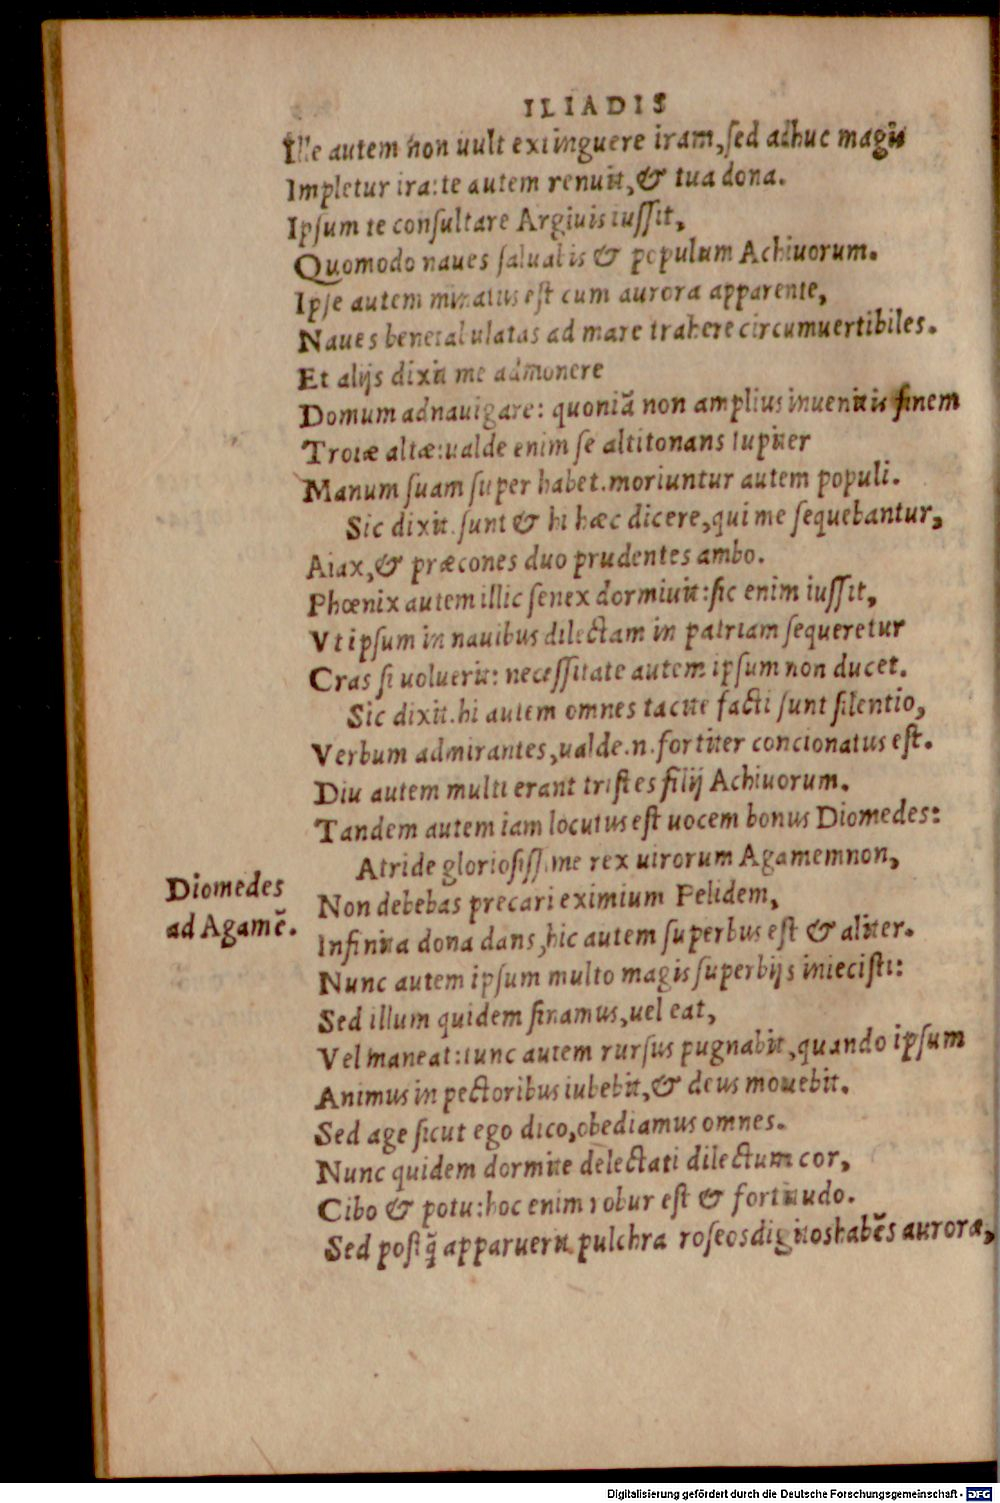 ILIADIS
Ille autem non uult extinguere iram, sed adhuc magis
Impletur ira: te autem renuit, & tua dona.
Ipsum te consultare Argiuis iussit,
Quomodo naues saluabis & populum Achiuorum.
Ipse autem minatus est cum aurora apparente,
Naues benetabulatas ad mare trahere circumuertibiles.
Et alijs dixit me admonere
Domum adnauigare: quoniā non amplius inuenitis finem
Troiæ altæ: ualde enim se altitonans Iupiter
Manum suam super habet. moriuntur autem populi.
Sic dixit. sunt & hi hæc dicere, qui me sequebantur,
Aiax, & præcones duo prudentes ambo.
Phœnix autem illic senex dormiuit: sic enim iussit,
Vt ipsum in nauibus dilectam in patriam sequeretur
Cras si uoluerit: necessitate autem ipsum non ducet.
Sic dixit. hi autem omnes tacite facti sunt silentio,
Verbum admirantes, ualde .n. fortiter concionatus est.
Diu autem multi erant tristes filij Achiuorum.
Tandem autem iam locutus est uocem bonus Diomedes:
Diomedes
ad Agamē.
Atride gloriosissime rex uirorum Agamemnon,
Non debebas precari eximium Pelidem,
Infinita dona dans, hic autem superbus est & aliter.
Nunc autem ipsum multo magis superbijs iniecisti:
Sed illum quidem sinamus, uel eat,
Vel maneat: tunc autem rursus pugnabit, quando ipsum
Animus in pectoribus iubebit, & deus mouebit.
Sed age sicut ego dico, obediamus omnes.
Nunc quidem dormite delectati dilectum cor,
Cibo & potu: hoc enim robur est & fortitudo.
Sed postq̄ apparuerit pulchra roseos digitos habēs auroræ,
Digitalisierung gefördert durch die Deutsche Forschungsgemeinschaft - DFG